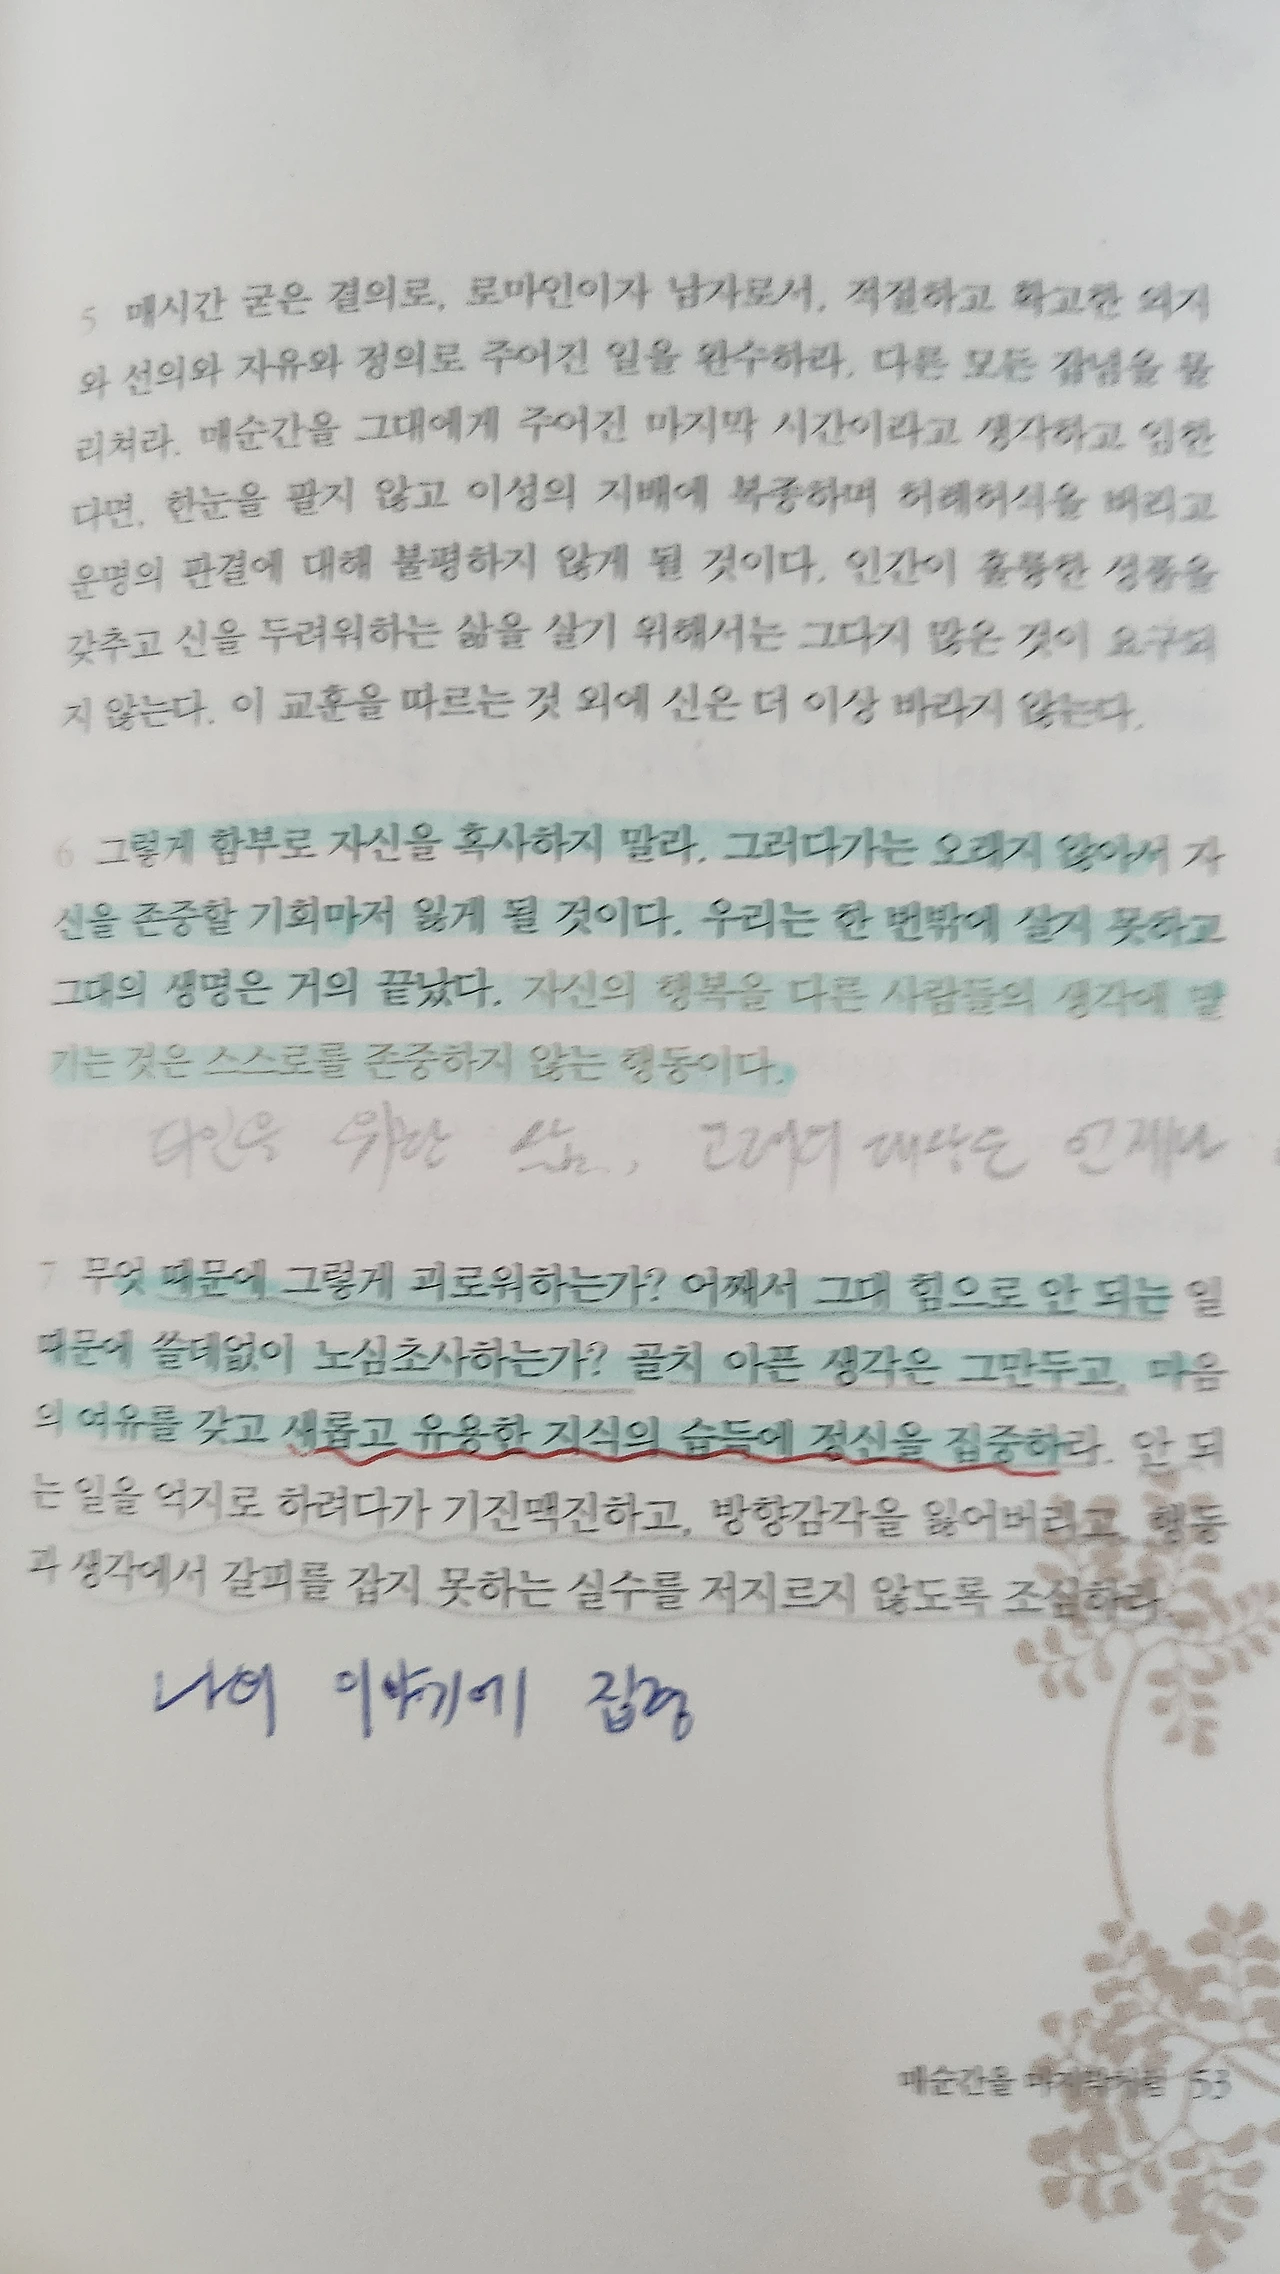 5 매시간 굳은 결의로, 로마인이자 남자로서, 적절하고 확고한 의지
와 선의와 자유와 정의로 주어진 일을 완수하라. 다른 모든 잡념을 물
리쳐라. 매순간을 그대에게 주어진 마지막 시간이라고 생각하고 임한
다면, 한눈을 팔지 않고 이성의 지배에 복종하며 허례허식을 버리고
운명의 판결에 대해 불평하지 않게 될 것이다. 인간이 훌륭한 성품을
갖추고 신을 두려워하는 삶을 살기 위해서는 그다지 많은 것이 요구되
지 않는다. 이 교훈을 따르는 것 외에 신은 더 이상 바라지 않는다.
6 그렇게 함부로 자신을 혹사하지 말라. 그러다가는 오래지 않아서 자
신을 존중할 기회마저 잃게 될 것이다. 우리는 한 번밖에 살지 못하고
그대의 생명은 거의 끝났다. 자신의 행복을 다른 사람들의 생각에 맡
기는 것은 스스로를 존중하지 않는 행동이다.
타인을 위한 삶, 그러며 대상은 언제나
7 무엇 때문에 그렇게 괴로워하는가? 어째서 그대 힘으로 안 되는 일
때문에 쓸데없이 노심초사하는가? 골치 아픈 생각은 그만두고, 마음
의 여유를 갖고 새롭고 유용한 지식의 습득에 정신을 집중하라. 안 되
는 일을 억지로 하려다가 기진맥진하고, 방향감각을 잃어버리고, 행동
과 생각에서 갈피를 잡지 못하는 실수를 저지르지 않도록 조심하라.
나의 이야기에 집중
매순간을 마지막처럼 53